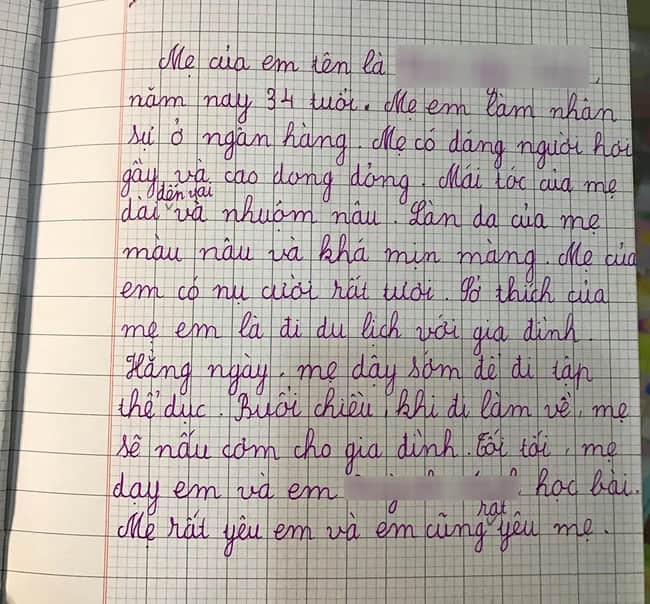 Mẹ của em tên là
năm nay 34 tuổi. Mẹ em làm nhân
sự ở ngân hàng. Mẹ có dáng người hơi
gầy và cao dong dỏng. Mái tóc của mẹ
đến vai
dài và nhuộm nâu. Làn da của mẹ
màu nâu và khá mịn màng. Mẹ của
em có nụ cười rất tươi. Sở thích của
mẹ em là đi du lịch với gia đình.
Hằng ngày, mẹ dậy sớm để đi tập
thể dục. Buổi chiều, khi đi làm về, mẹ
sẽ nấu cơm cho gia đình. Tối tối, mẹ
dạy em và em học bài.
rất
Mẹ rất yêu em và em cũng yêu mẹ.